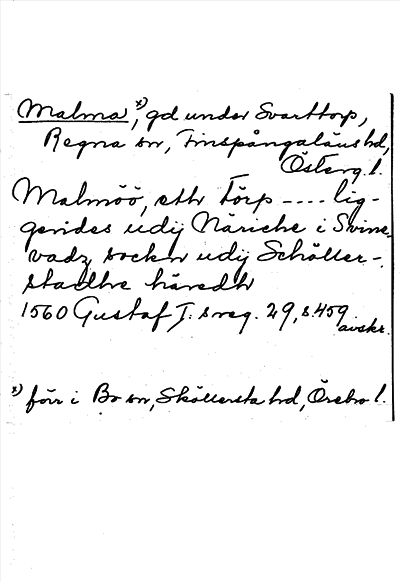 Malma,x) gd under Svarttorp,
Regna sn, Finspångaläns hd,
Österg. l.
Malmöö, eth Torp ---- lig-
gendes udij Näriche i Svine-
vadz sockn udij Schöller-
stadhe häredh
1560 Gustaf I:s reg. 29, s. 459
avskr.
x) förr i Bo sn, Sköllersta hd, Örebro l.